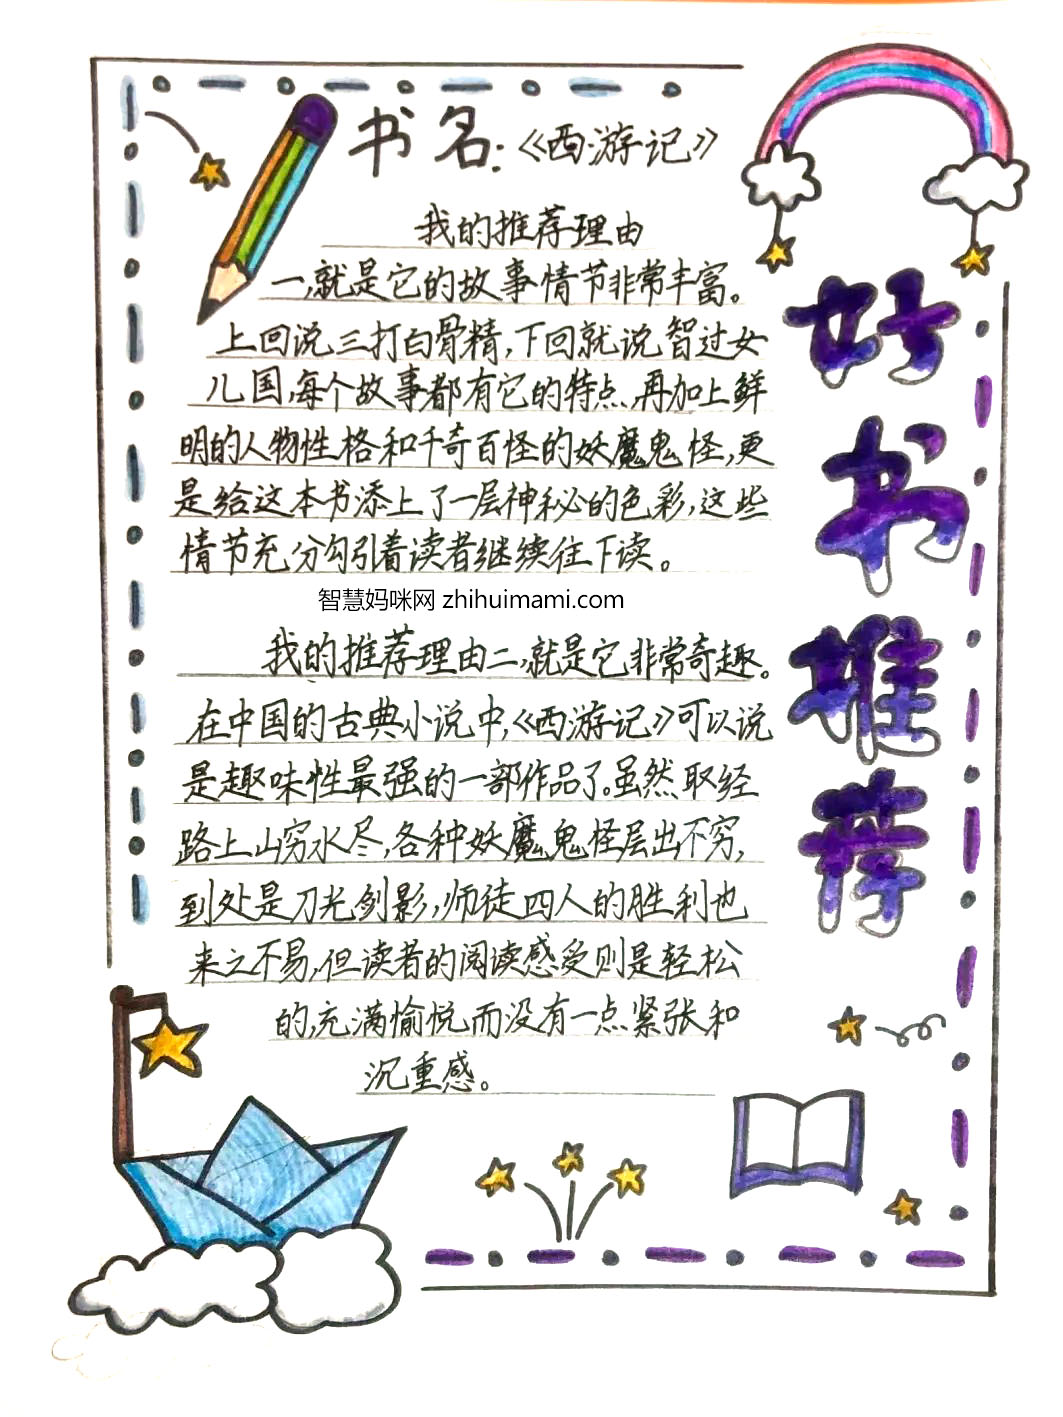 书名:《西游记》
我的推荐理由
一,就是它的故事情节非常丰富。
上回说三打白骨精,下回就说智过女
儿国,每个故事都有它的特点,再加上鲜
明的人物性格和千奇百怪的妖魔鬼怪,更
是给这本书添上了一层神秘的色彩,这些
情节充分勾引着读者继续往下读。
智慧妈咪网 zhihuimami.com
我的推荐理由二,就是它非常奇趣。
在中国的古典小说中,《西游记》可以说
是趣味性最强的一部作品了。虽然取经
路上山穷水尽,各种妖魔鬼怪层出不穷,
到处是刀光剑影,师徒四人的胜利也
来之不易,但读者的阅读感受则是轻松
的,充满愉悦而没有一点紧张和
沉重感。
好书推荐